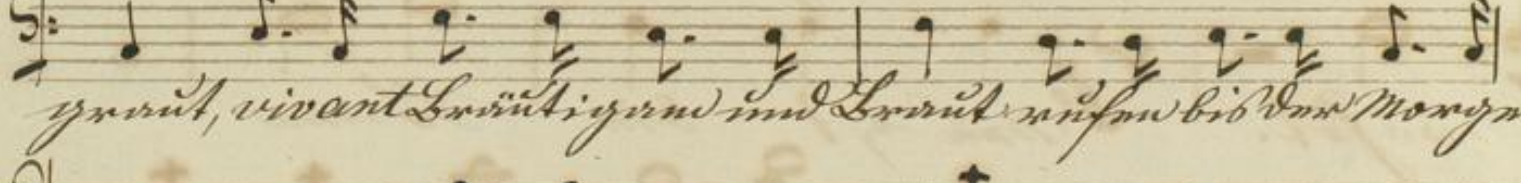 graut, vivant Bräutigam und Braut rufen bis der Morge